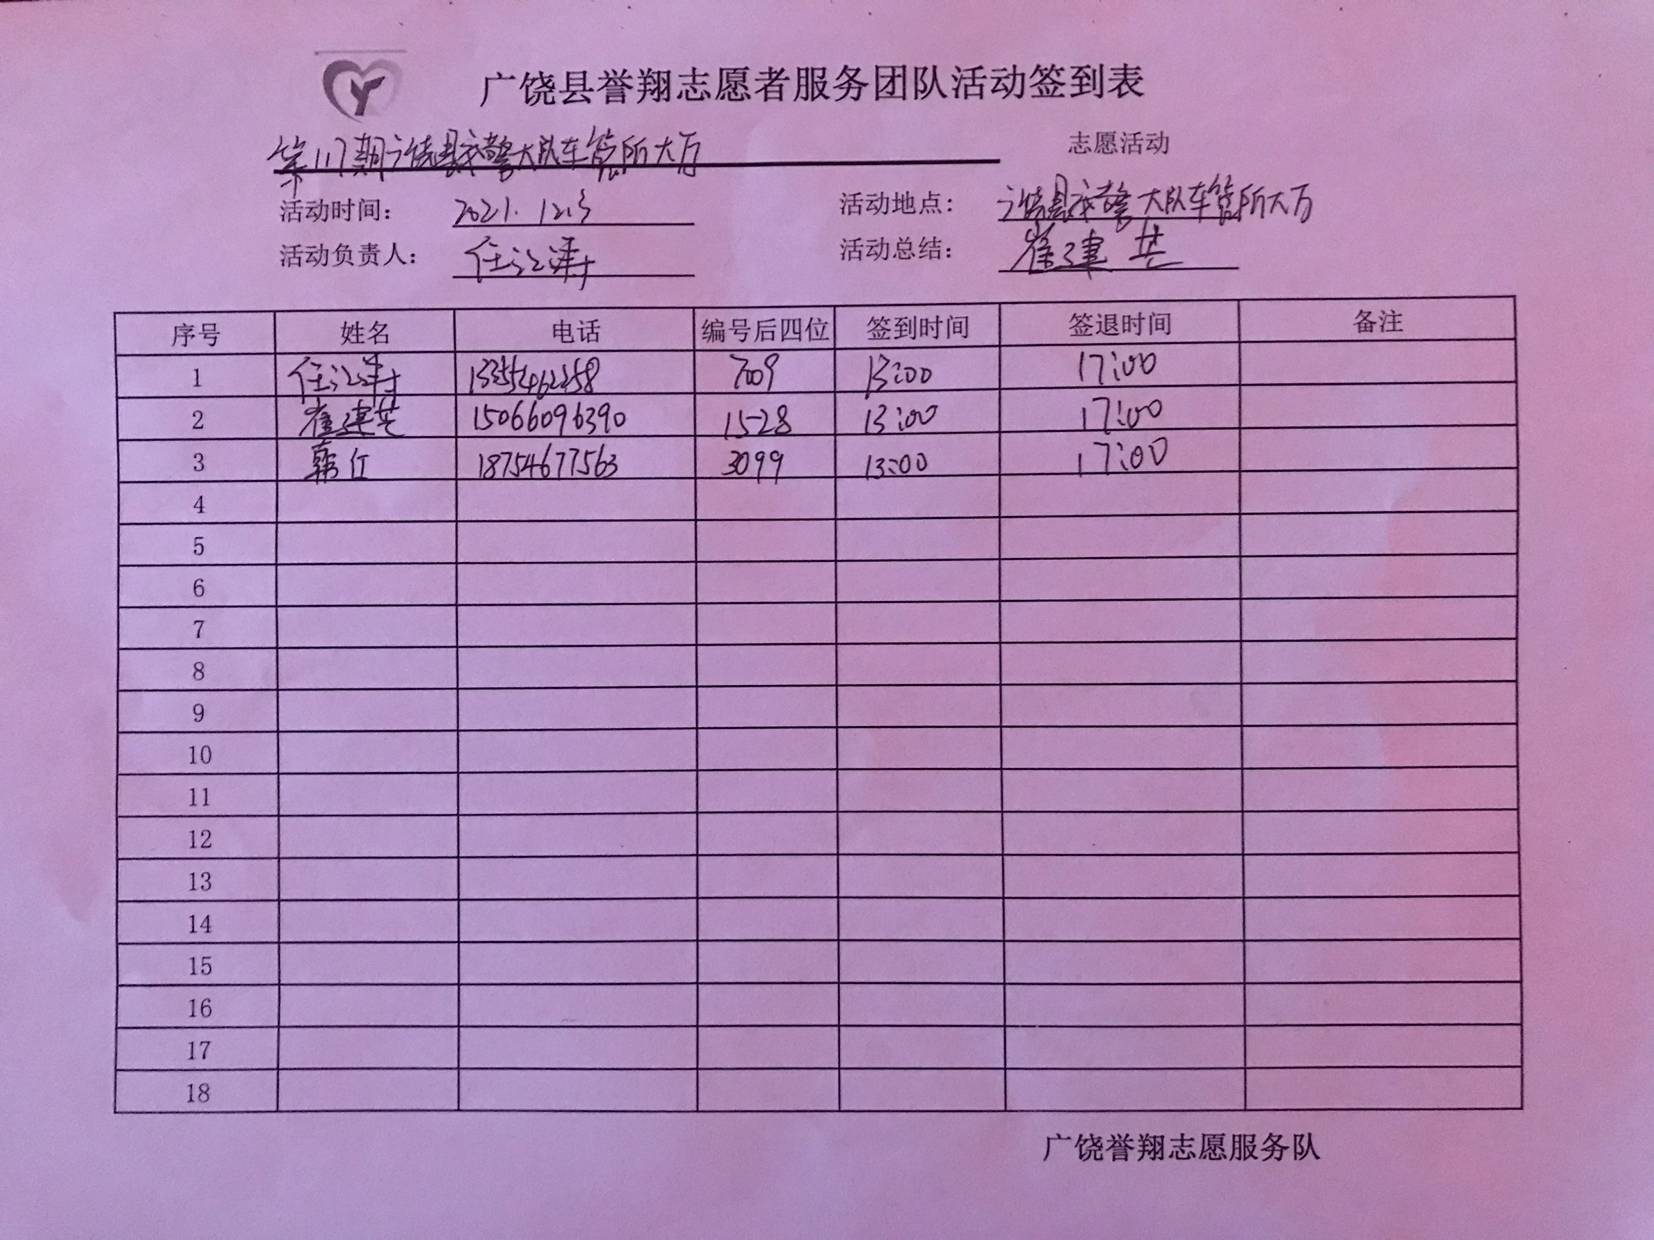 广饶县誉翔志愿者服务团队活动签到表
第117期广饶县交警大队车管所大厅 志愿活动
活动时间： 2021.12.3 活动地点： 广饶县交警大队车管所大厅
活动负责人： 任江涛 活动总结： 崔建芸
序号 姓名 电话 编号后四位 签到时间 签退时间 备注
1 任江涛 709 13:00 17:00
2 崔建芸 15066096390 1528 13:00 17:00
3 韩红 18754677563 3099 13:00 17:00
4
5
6
7
8
9
10
11
12
13
14
15
16
17
18
广饶誉翔志愿服务队